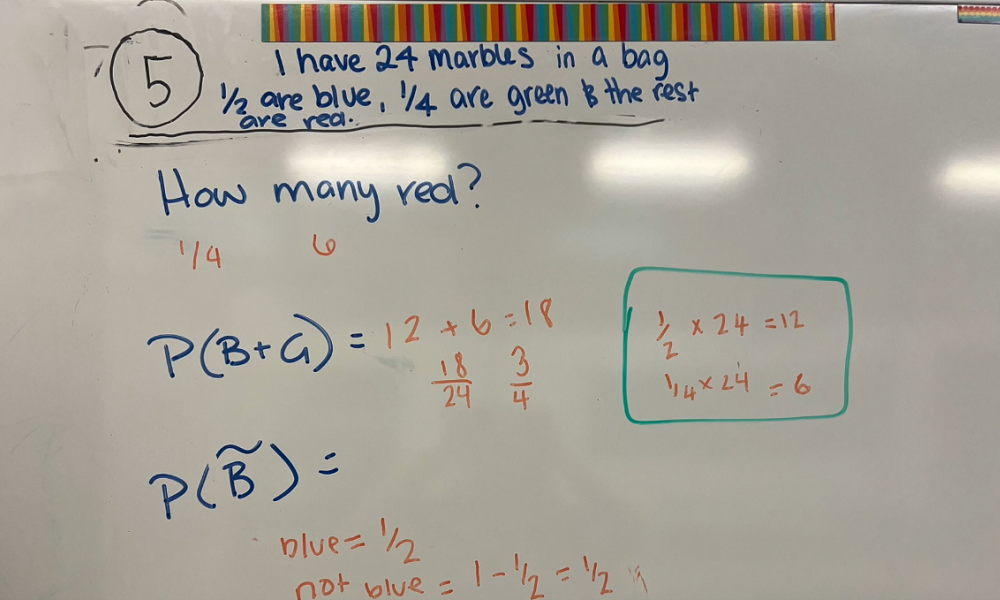 5
I have 24 marbles in a bag
1/2 are blue, 1/4 are green & the rest
are red.
How many red?
1/4 6
P(B+G) = 12 + 6 = 18
18/24 3/4
1/2 x 24 = 12
1/4 x 24 = 6
P(B̃) =
blue = 1/2
not blue = 1 - 1/2 = 1/2